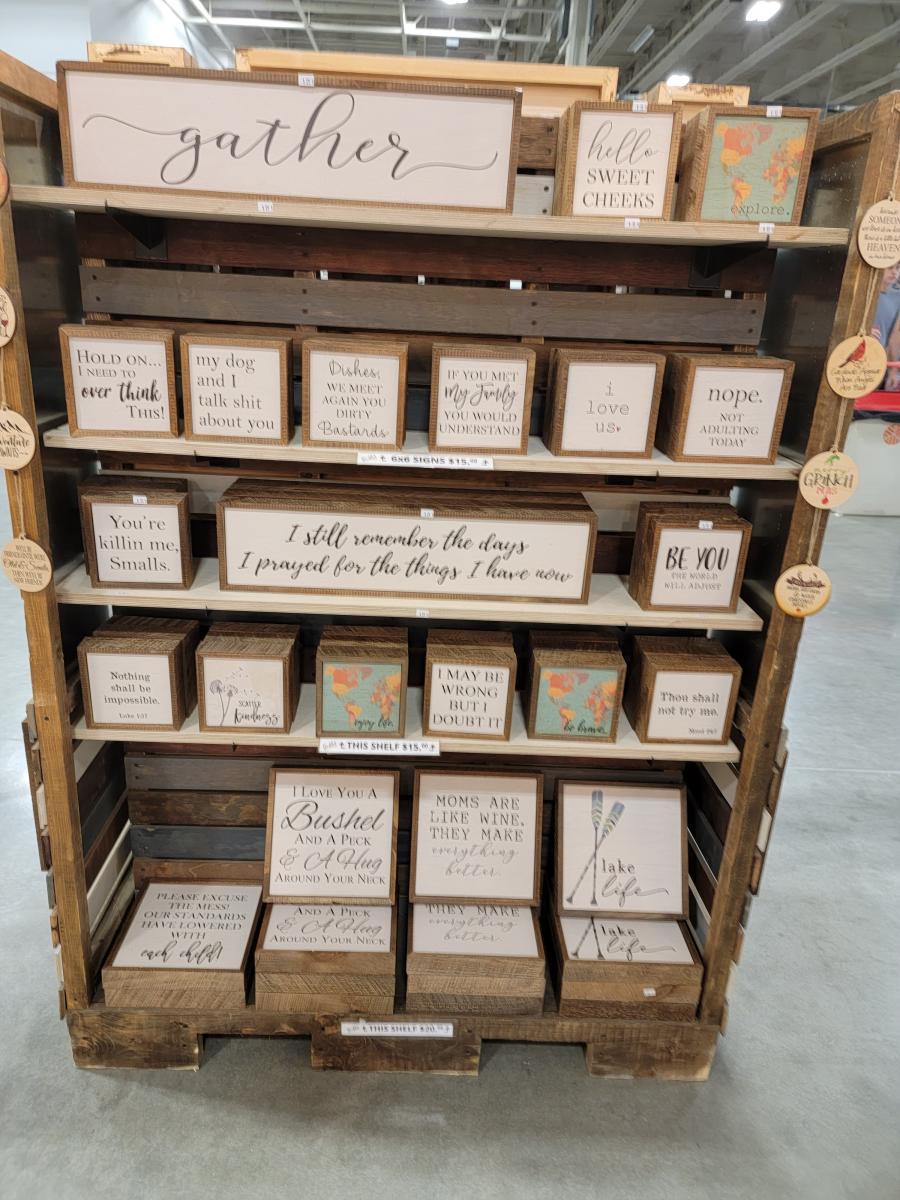 gather
hello
SWEET
CHEEKS
explore.
HOLD ON...
I NEED TO
over think
THIS!
my dog
and I
talk shit
about you
Dishes,
WE MEET
AGAIN YOU
DIRTY
Bastards
IF YOU MET
My Family
YOU WOULD
UNDERSTAND
i
love
us
nope.
NOT
ADULTING
TODAY
6x6 SIGNS $15.00
You're
killin me,
Smalls.
I still remember the days
I prayed for the things I have now
BE YOU
THE WORLD
WILL ADJUST
Nothing
shall be
impossible.
Luke 1:37
SCATTER
Kindness
enjoy life.
I MAY BE
WRONG
BUT I
DOUBT IT
be brave.
Thou shall
not try me.
THIS SHELF $15.00
I LOVE YOU A
Bushel
AND A PECK
& A Hug
AROUND YOUR NECK
MOMS ARE
LIKE WINE.
THEY MAKE
everything
better.
lake
life
PLEASE EXCUSE
THE MESS!
OUR STANDARDS
HAVE LOWERED
WITH
each child!
AND A PECK
& A Hug
AROUND YOUR NECK
THEY MAKE
everything
better.
lake
life
THIS SHELF $20.00
HEAVEN
GRINCH